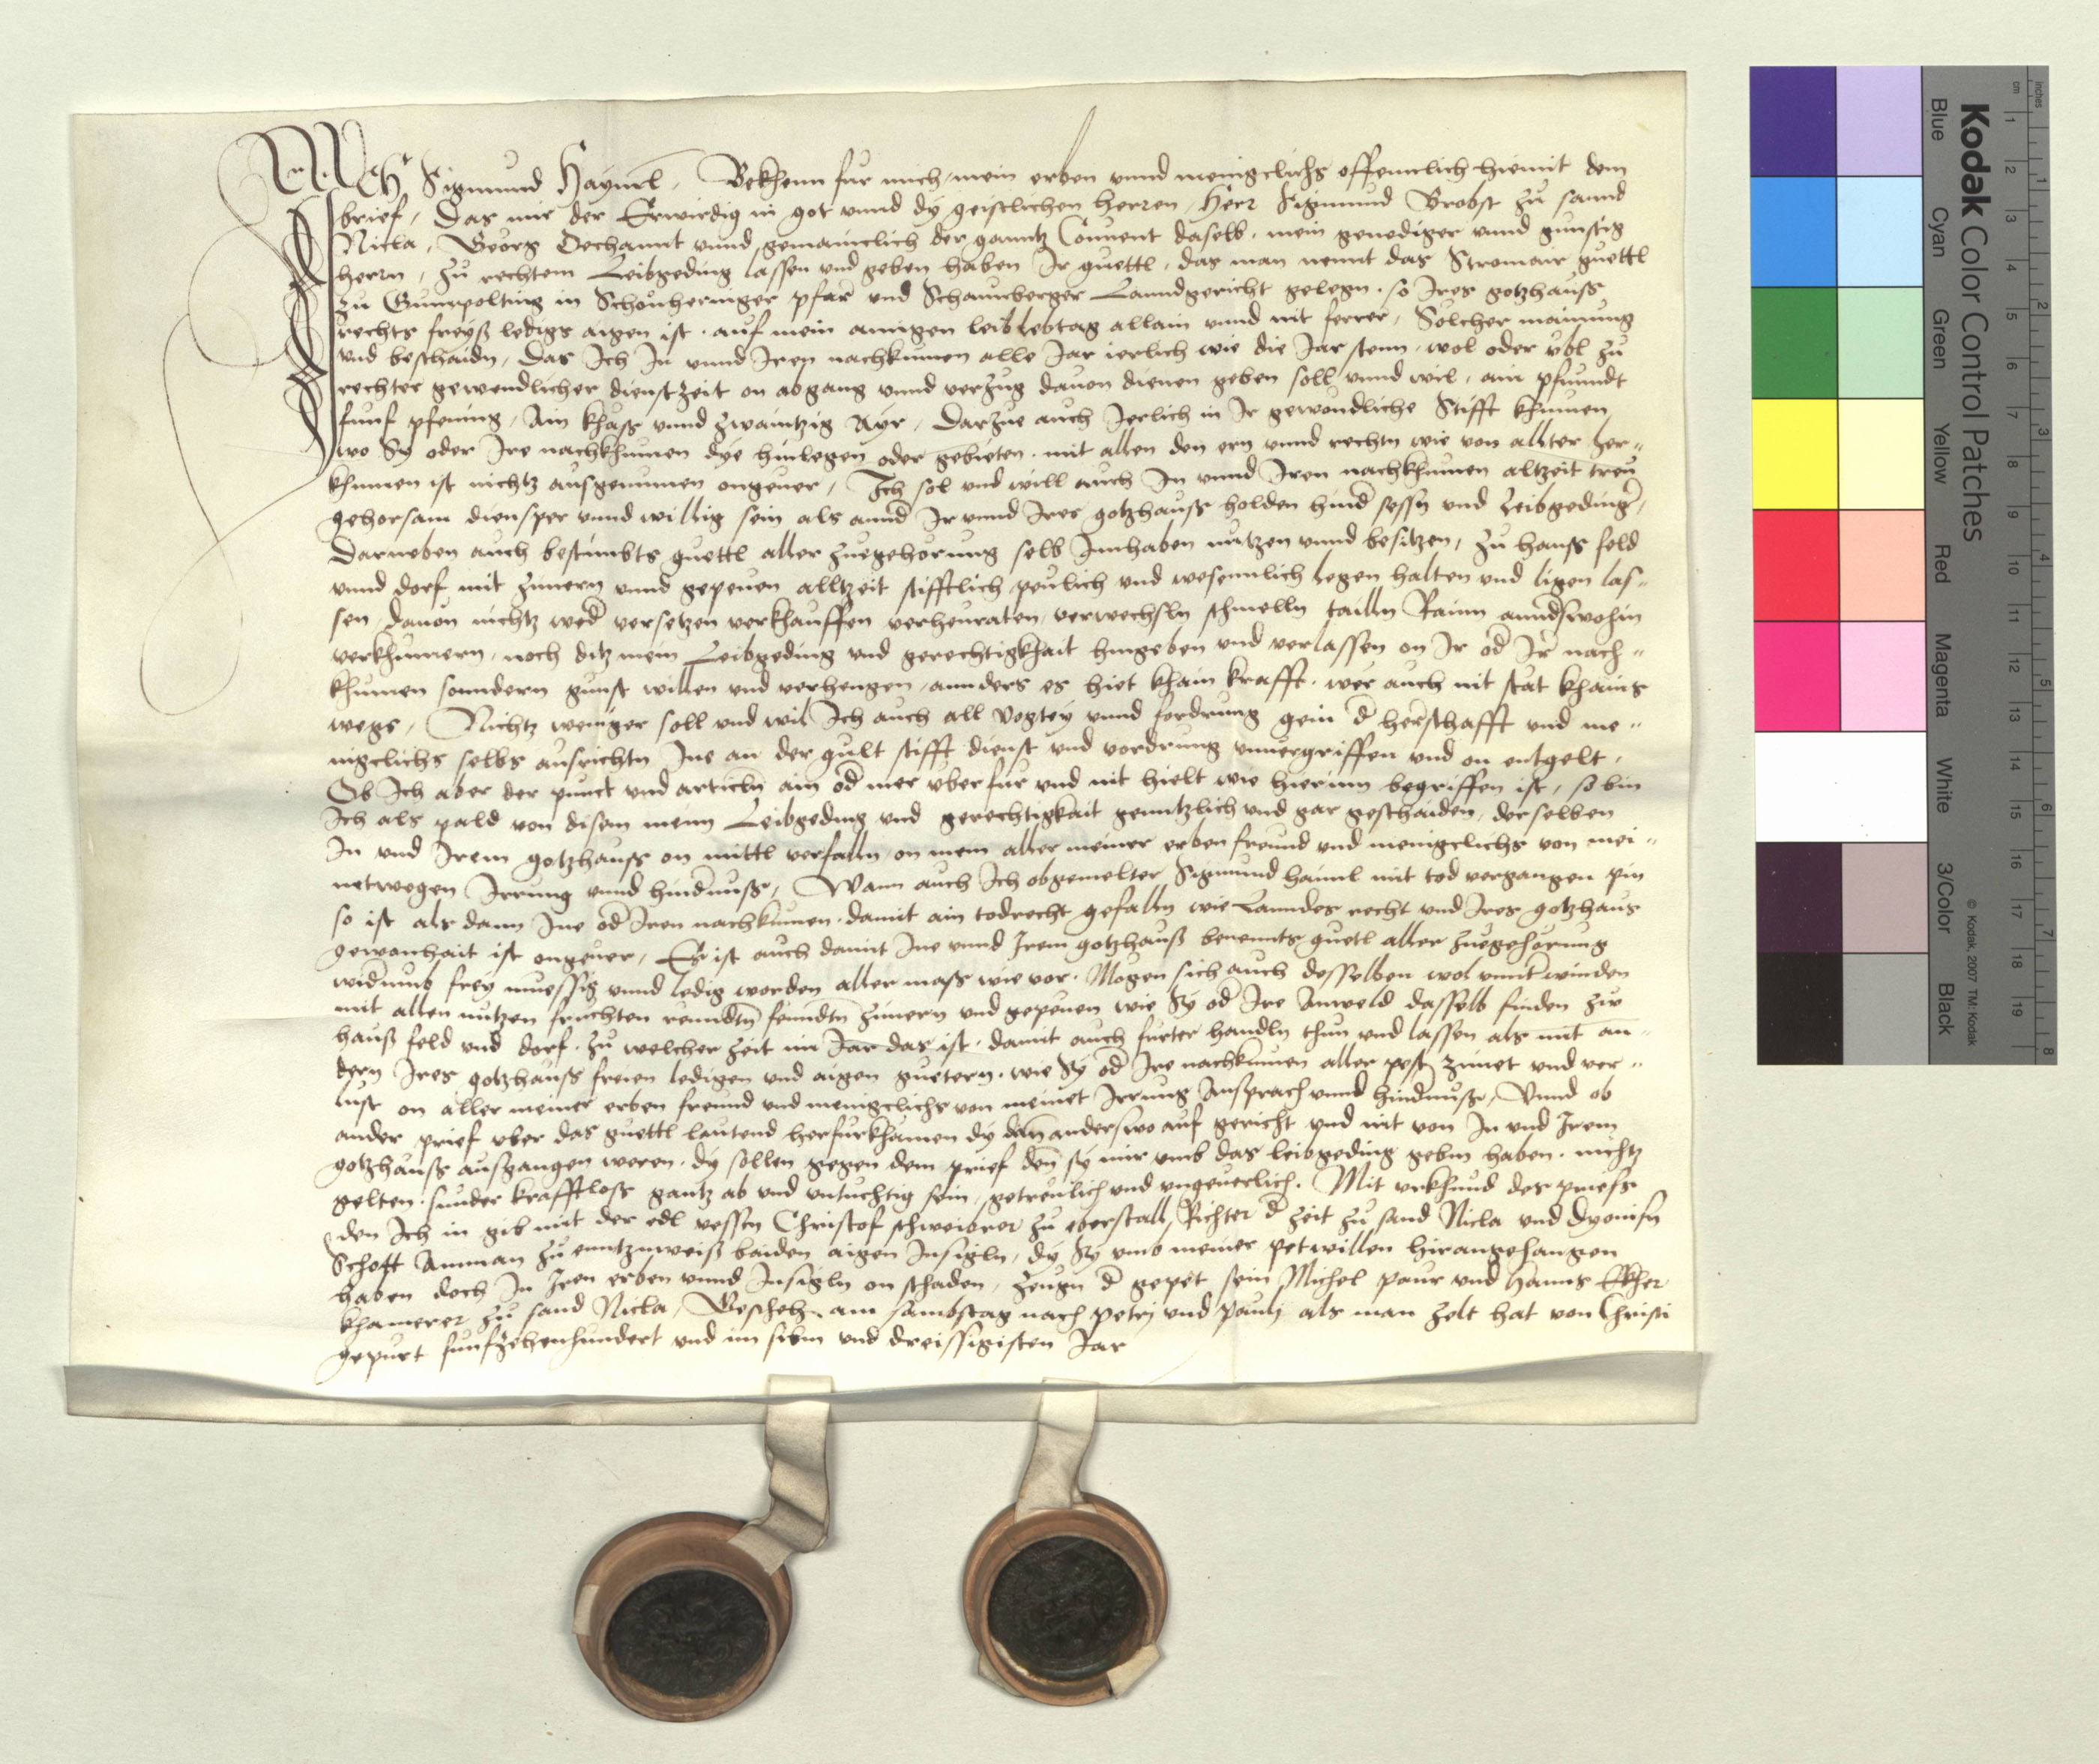 Ich Sigmund Haymel, Bekhenn fur mich, mein erben vnnd menigclichs offennlich hiemit dem
brief, Das mir der Erwirdig in got vnnd dy geistlichen herren, Herr Sigmund Brobst zu sannd
Nicla, Georg Dechannt vnnd gemainclich der ganntz Conuent daselb, mein genediger vnnd gunstig
herrn, zu rechtem Leibgeding lassen vnd geben haben Ir guettl, das man nennt das Stromair guettl
zu Gumpolting in Schonheringer pfar vnd Schaunberger Lanndgericht gelegn, so Ires gotzhauss
rechts freyss ledigs aigen ist, auf mein ainigen leib lebtag allain vnnd nit ferrer, Solcher mainung
vnd beschaidn, Das Ich In vnnd Iren nachkumen alle Iar ierlich wie die Iar stenn, wol oder vbl zu
rechter gewendlicher dienstzeit on abgang vnnd verzug dauon dienen geben soll vnnd wil, ain pfundt
funf pfening, Ain khass vnnd zwaintzig Ayr, Darzue auch Ierlich in Ir gewondliche Stifft khumen,
wo Sy oder Ire nachkhumen dye hinlegen oder gebieten, mit allen den ern vnnd rechtn wie von allter her„
khumen ist nichtz ausgenumen ongeuer, Ich sol vnd will auch In vnnd Iren nachkhumen altzeit treu
gehorsam diensper vnnd willig sein als annd Ir vnnd Ires gotzhauss holden hind sessn vnd Leibgeding,
Darneben auch bestimbts guettl aller zuegehorung selb Innhaben nutzen vnnd besitzen, zu hauss feld
vnnd dorf mit zimern vnnd gepeuen alltzeit stifftlich peulich vnd wesennlich legen halten vnd ligen las„
sen, dauon nichtz wed versetzen verkhauffen verheuraten, verwechsln schmelln tailln Raum annd swohin
verkhumern, noch ditz mein Leibgeding vnd gerechtigkhait hingeben vnd verlassen on Ir od Ir nach„
khumen sonndern gunst willen vnd verhengen, annders es hiet khain krafft, wer auch nit stat khains
wegs, Nichtz weniger soll vnd wil Ich auch all vogtey vnnd fordrung gein d herschafft vnd me„
nigclichs selbs ausrichtn Ine an der gult stifft dienst vnd vordrung vnuergriffen vnd on entgelt,
Ob Ich aber der punct vnd articln ain od mer vberfur vnd nit hielt wie hierinn begriffen ist, so bin
Ich als pald von disem meinn Leibgeding vnd gerechtigkait genntzlich vnd gar geschaiden, derselben
In vnd Irem gotzhauss on mittl verfalln, on mein aller meiner erben freund vnd menigclichs von mei„
netwegen Irrung vnnd hindnuss, Wann auch Ich obgemelter Sigmund haiml mit tod vergangen pin
so ist als dann Ine od Iren nachkumen, damit ain todrecht gefalln wie Lanndes recht vnd Ires gotzhaus
gewonhait ist ongeuer, Es ist auch damit Ine vnnd Irem gotzhauß benennts guetl aller zuegehorung
widumb frey muessig vnnd ledig worden aller mass wie vor, Mogen sich auch desselben wol vnnt winden
mit allen nutzen fruchten renndtn fenndtn zimern vnd gepeuen wie Sy od Ire Anweld dasselb finden zw
hauß feld vnd dorf, zu welcher zeit im Iar das ist, damit auch furter handln thun vnd lassen als mit an„
dern Ires gotzhauss freien ledigen vnd aigen guetern, wie Sy od Ire nachkumen aller pest zimet vnd ver„
lust on aller meiner erben freund vnd menigclichs von meinet Irrung Ansprach vnnd hindnuss, Vnnd ob
ander prief vber das guettl lautend herfurkhamen dy dan anderswo auf gericht vnd nit von In vnd Irem
gotzhauss aussgangen weren, dy sollen gegen dem prief den sy mir vmb das leibgeding gebn haben, nichtz
gelten, sunder krafftloss gantz ab vnd vntuchtig sein, getreulich vnd vngeuerlich, Mit vrkhund des priefs
den Ich in gib mit der edl vessen Christof schweibrer zu eberstall, Richter d zeit zu sand Nicla vnd Dyonisn
Schott Amman zu enntznweiß baiden aigen Insigln, dy Sy vmb meiner pet willen hirangehangen
haben doch In Iren erben vnnd Insigln on schaden, zeugn d gepet sein Michel paur vnd Hanns Ekher
khamerer zu sand Nicla, Beschehn am sambstag nach petri vnd pauli als man zelt hat von Christi
gepurt funfzehenhundert vnd im sibm vnd dreissigisten Iar
inches
cm
1 2 3 4 5 6 7 8 9 10 11 12 13 14 15 16 17 18 19
1 2 3 4 5 6 7 8
Kodak Color Control Patches
© Kodak, 2007 TM: Kodak
Blue Cyan Green Yellow Red Magenta White 3/Color Black